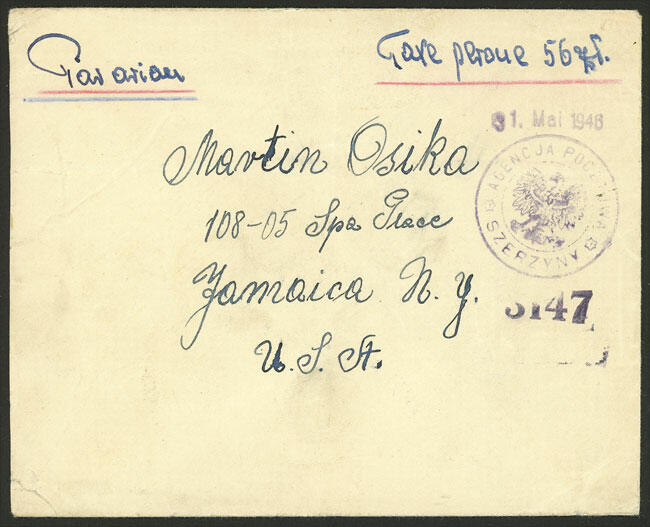 Par avion
Taxe perçue 56 zł.
31. Mai 1946
AGENCJA POCZTOWA
SZERZYNY
Martin Osika
108-05 Spa Place
Jamaica N. Y.
U. S. A.
3147